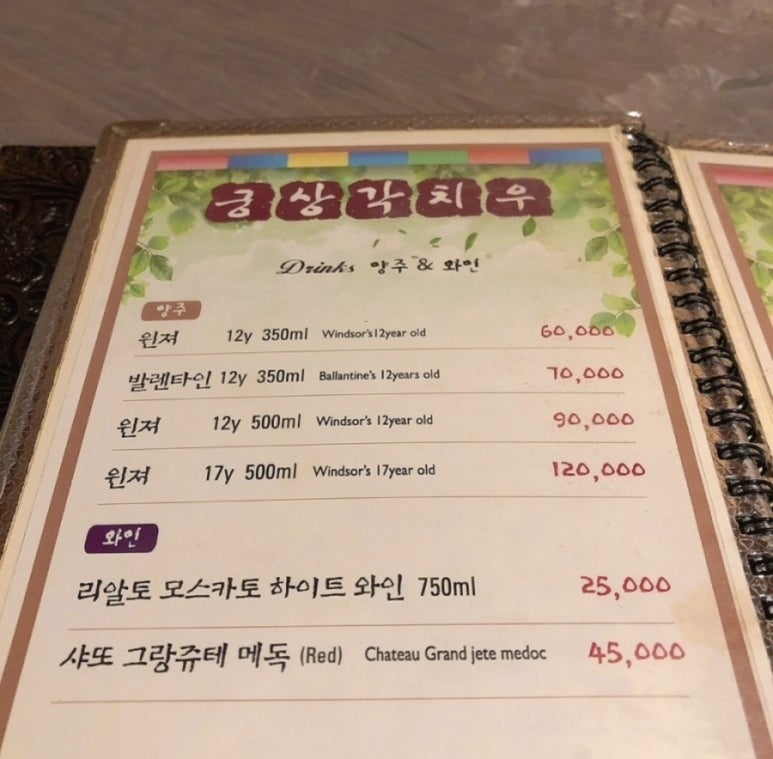 궁상각치우
Drinks 양주 & 와인
양주
윈져 12y 350ml Windsor's12year old 60,000
발렌타인 12y 350ml Ballantine's 12years old 70,000
윈져 12y 500ml Windsor's 12year old 90,000
윈져 17y 500ml Windsor's 17year old 120,000
와인
리알토 모스카토 하이트 와인 750ml 25,000
샤또 그랑쥬테 메독 (Red) Chateau Grand jete medoc 45,000